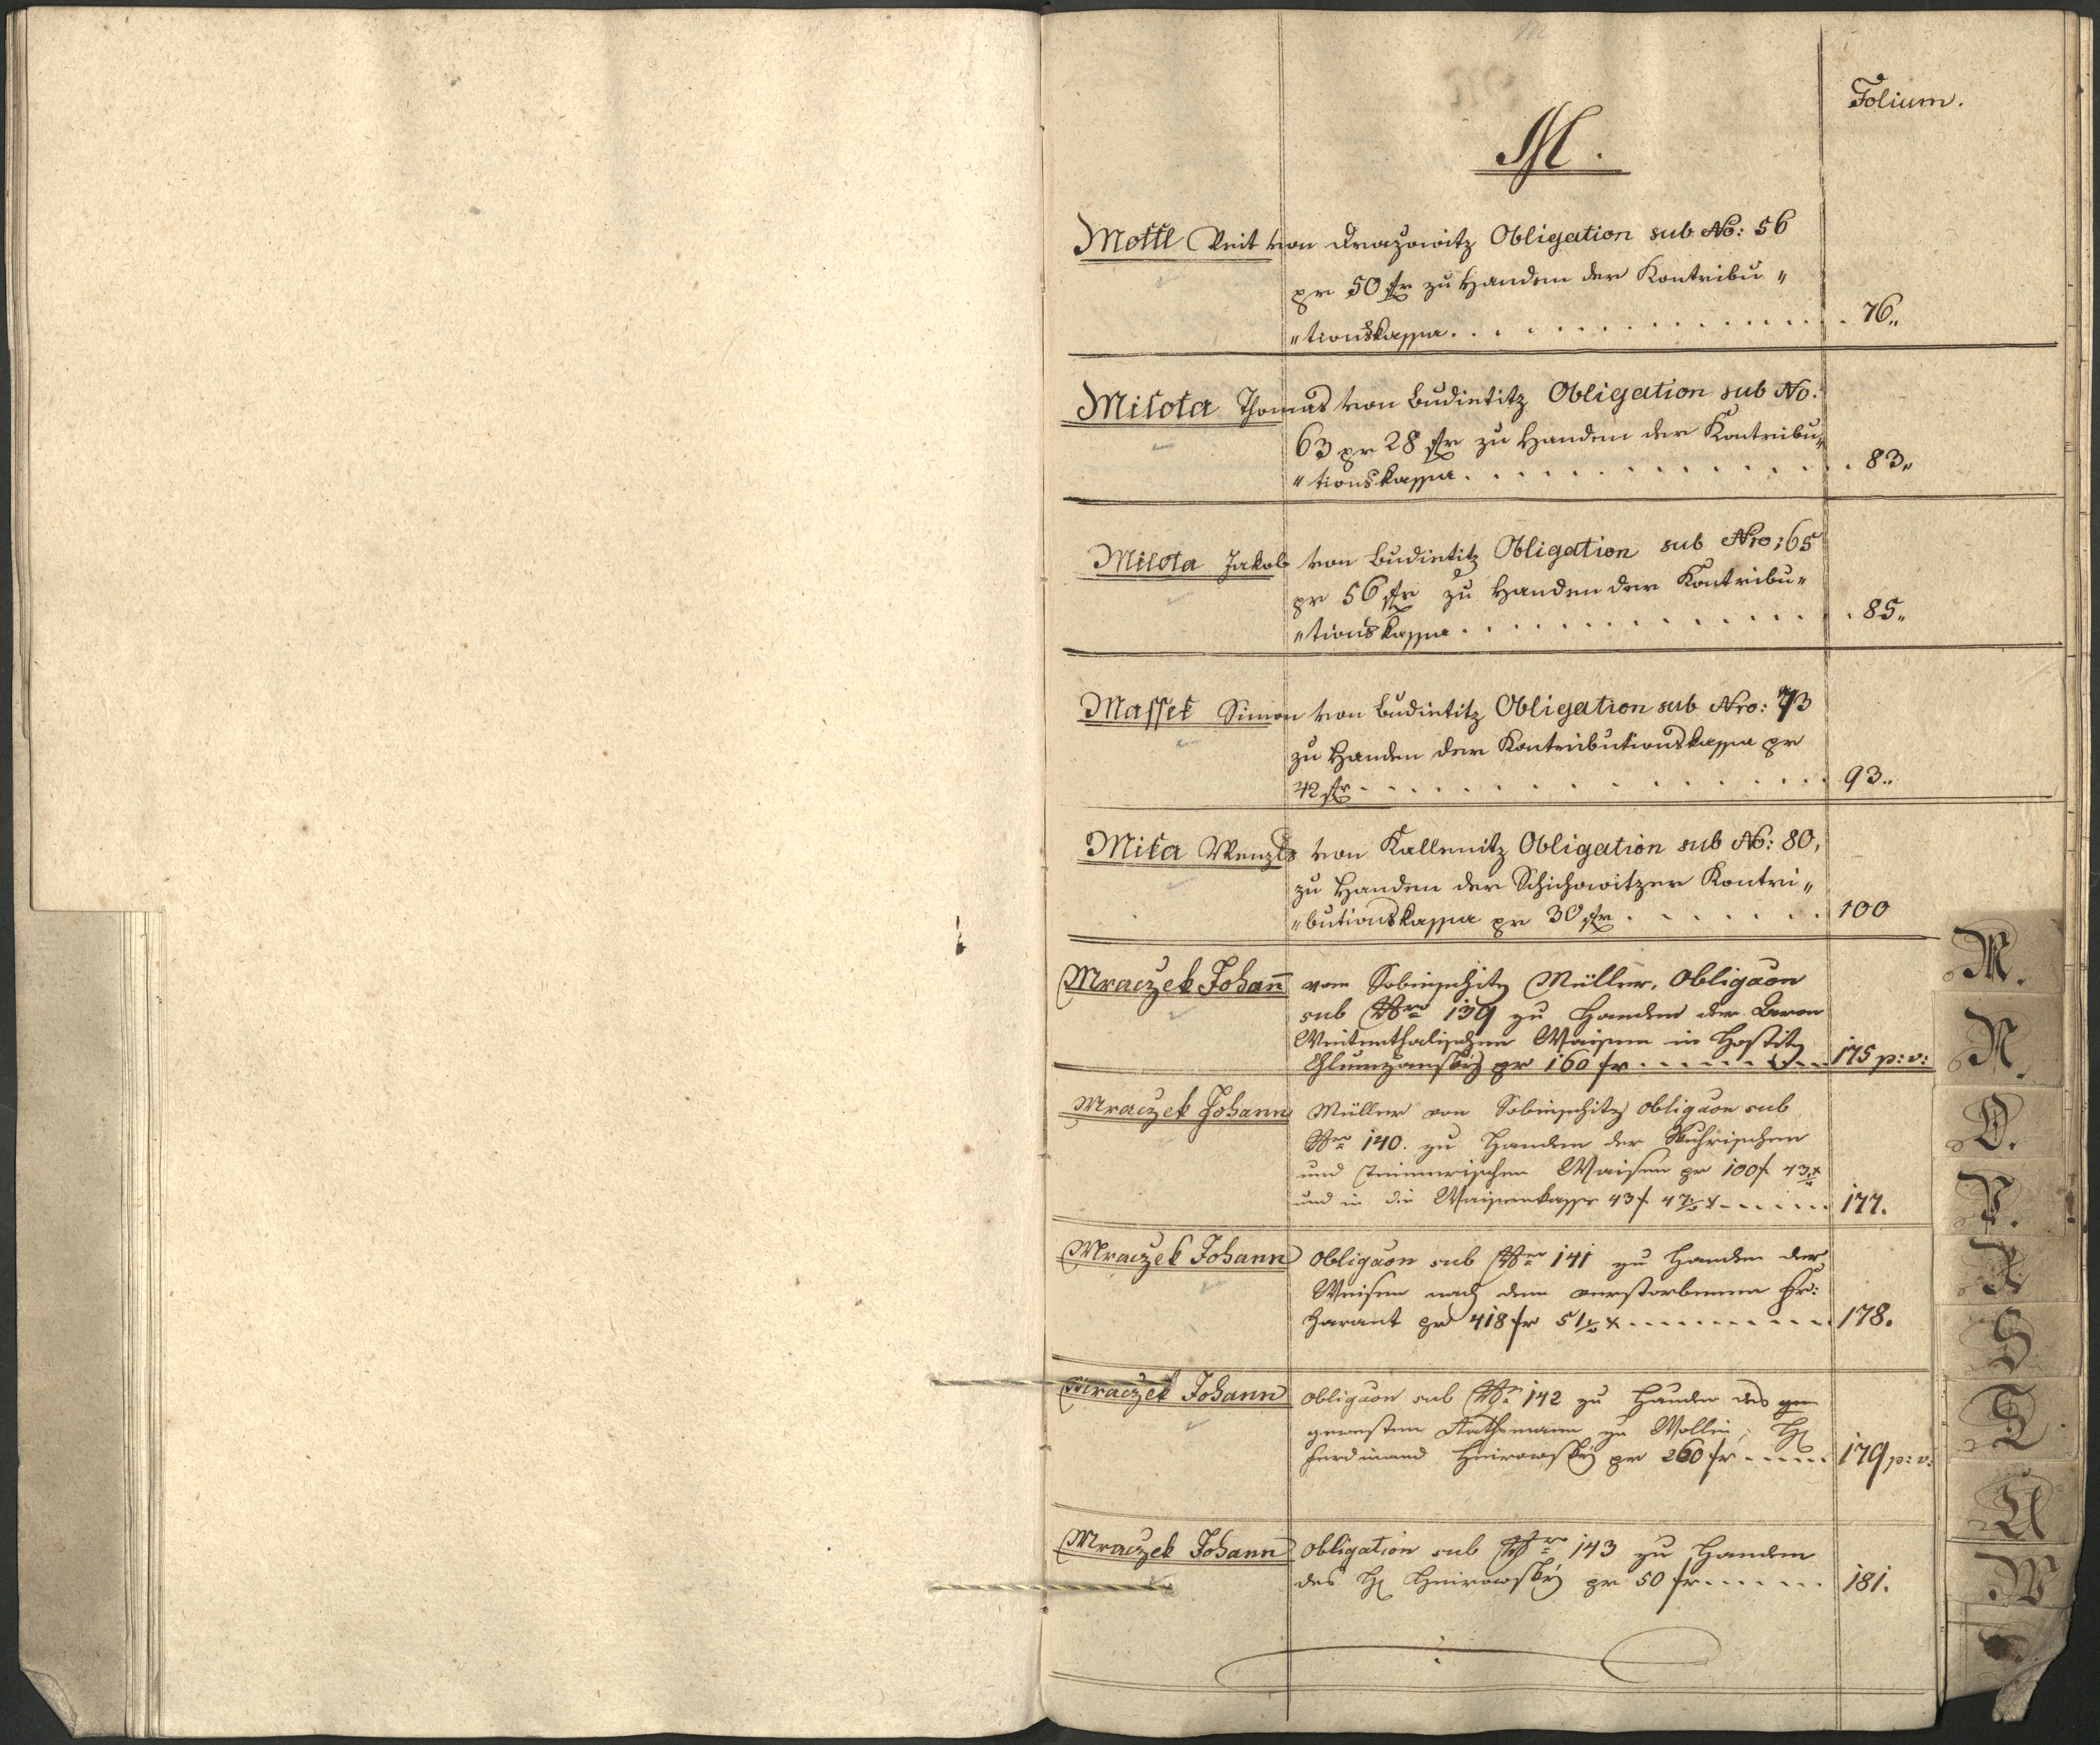 Folium.
M.
Mottl Veit von Drazowitz Obligation sub No: 56
pr 50 fr zu Handen der Kontribu„
„tionskassa. . . . . . . . . . . . . . . . 76„
Milota Thomas von Budietitz Obligation sub No:
63 pr 28 fr zu Handen der Kontribu„
„tionskassa. . . . . . . . . . . . . . . 83„
Milota Jakob von Budietitz Obligation sub Nro: 65
pr 56 fr zu Handen der Kontribu„
„tionskassa . . . . . . . . . . . . . . . 85„
Massek Simon von Budietitz Obligation sub Nro: 73
zu Handen der Kontributionskassa pr
42 fr. . . . . . . . . . . . . . . . . 93„
Mika Wenzl von Kallenitz Obligation sub No: 80,
zu Handen der Schichowitzer Kontri„
„butionskassa pr 30 fr . . . . . . . 100
Mraczek Johann̅ von Sobieschitz Müller, Obligaon
sub Nro 139 zu Handen der Baron
Waisen in Hostitz
pr 160 fr. . . . . . . . 175 p: v:
Mraczek Johann Müller von Sobieschitz obligaon sub
Nro 140. zu Handen der
und Waisen pr 100 f. 43 x
und in die Waisenkasse 43 f. 47 x . . . . . . 177.
Mraczek Johann Obligaon sub Nro 141 zu Handen der
Waisen nach dem verstorbenen Hr:
Harant pr 418 fr 51 x . . . . . . . . . . 178.
Mraczek Johann obligaon sub Nro 142 zu Handen des
gewesten Rathsmann zu Wollin, H
Ferdinand pr 260 fr . . . . . 179 p: v:
Mraczek Johann Obligation sub Nro 143 zu Handen
des H pr 50 fr. . . . . . 181.
M.
N.
O.
P.
R
S
T
U
W